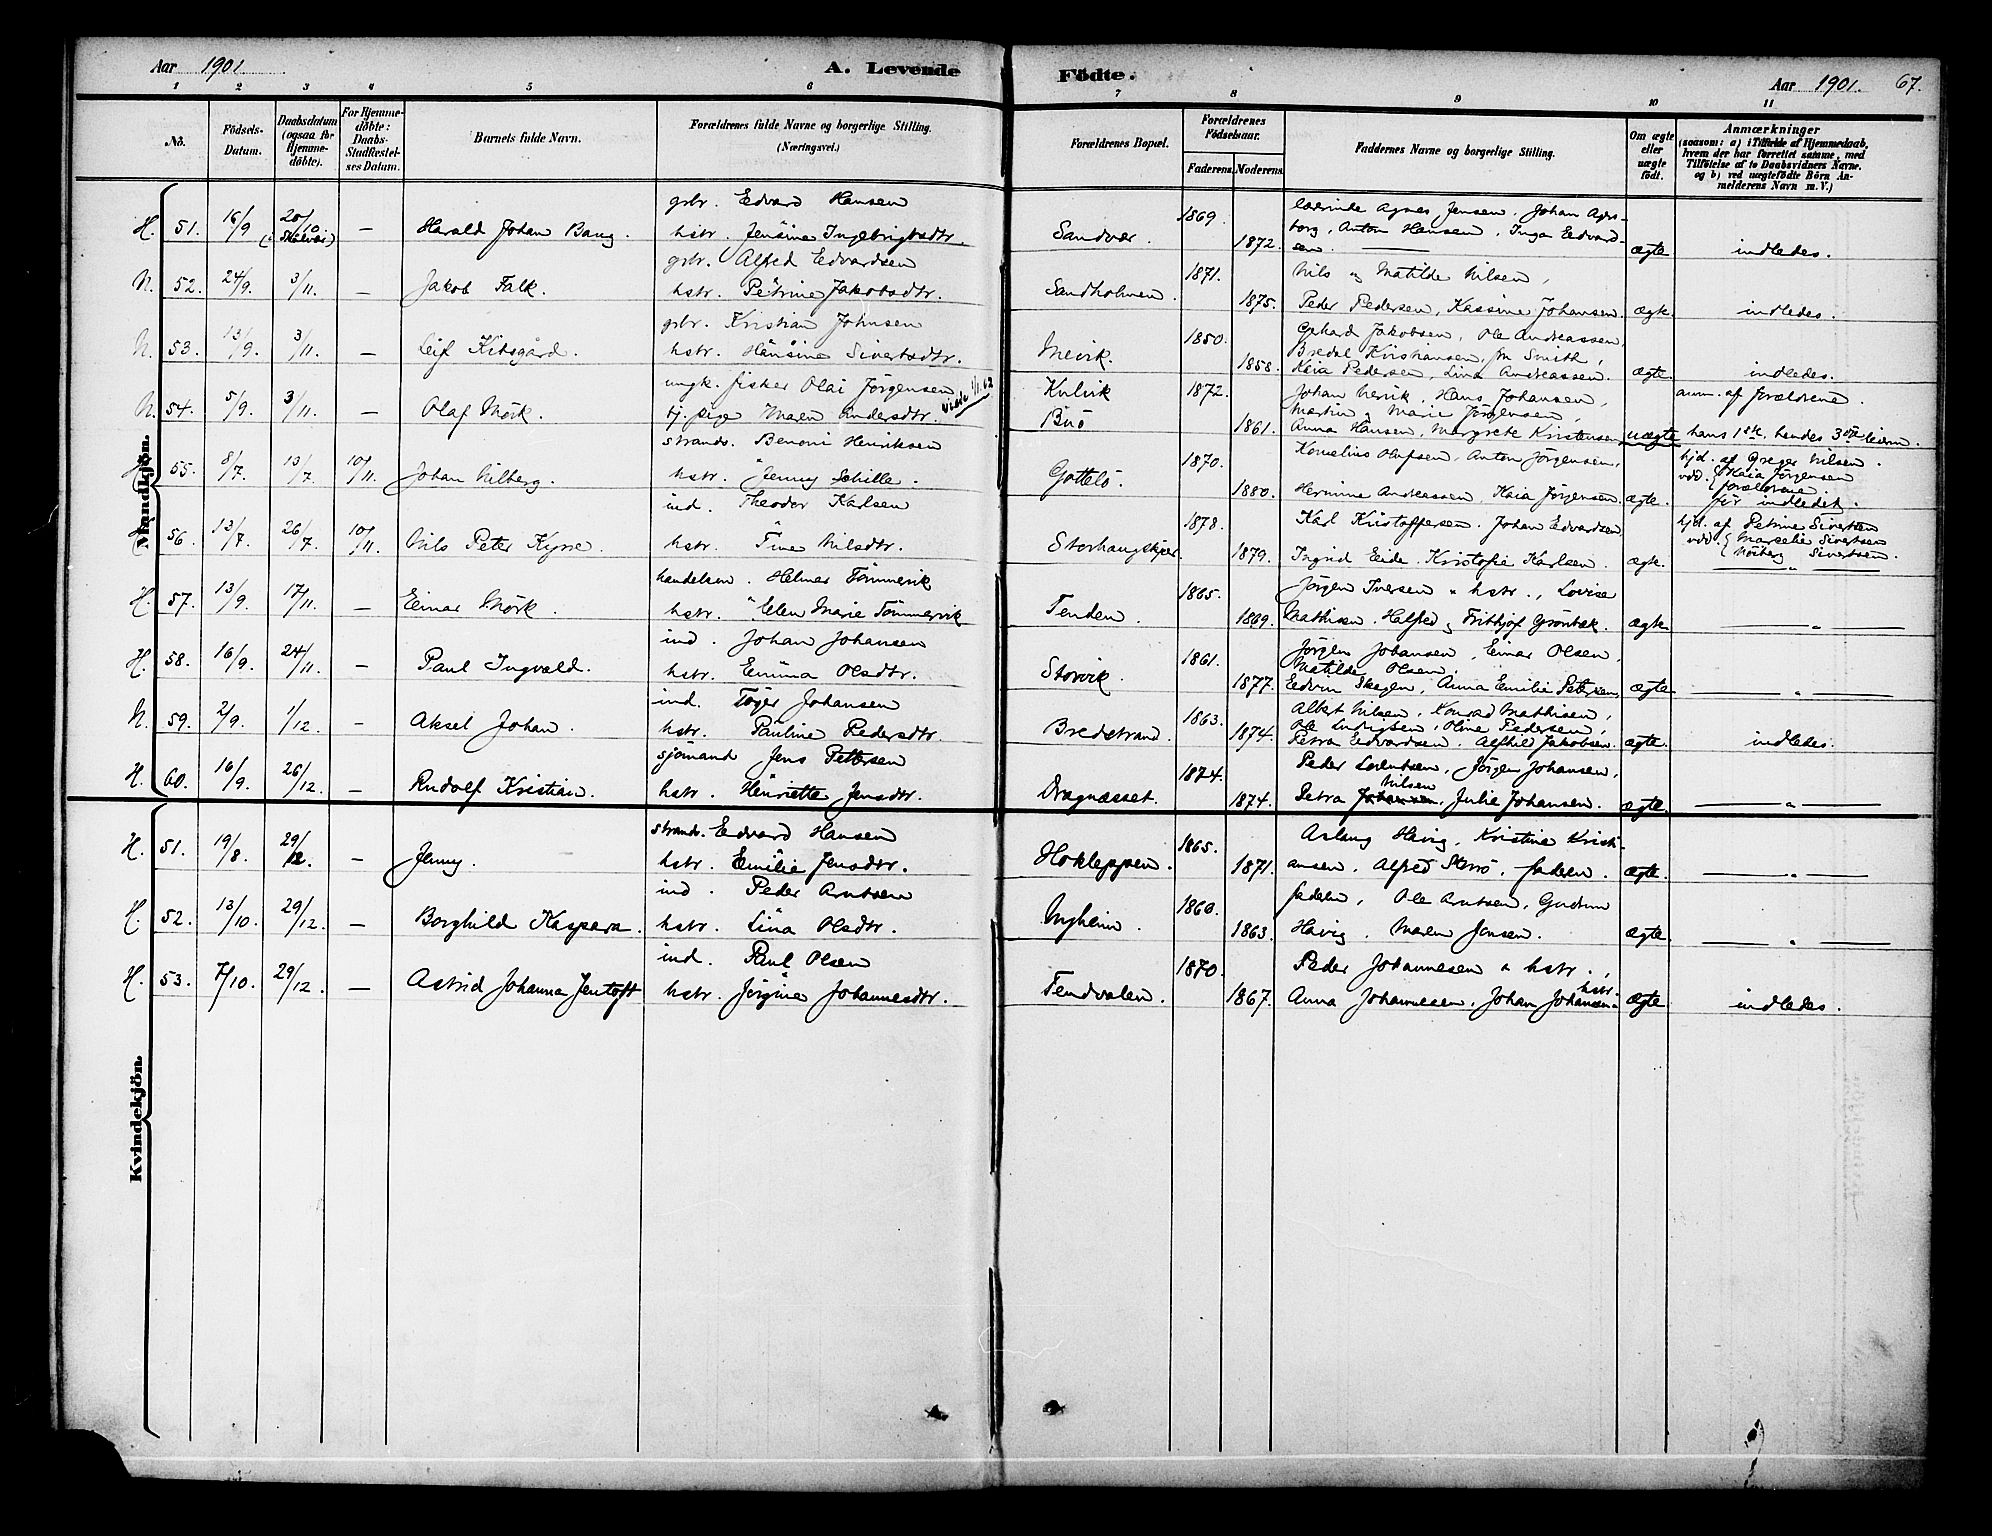 Aar 1901. A. Levende Födte. Aar 1901. 67.
1 2 3 4 5 6 7 8 9 10 11
No. Födsels-Datum. Daabsdatum (ogsaa for Hjemmedöbte). For Hjemmedöbte: Daabs-Stadfæstelses Datum. Barnets fulde Navn. Forældrenes fulde Navne og borgerlige Stilling. (Næringsvei.) Forældrenes Bopæl. Forældrenes Födselsaar. Faderens. Moderens. Faddernes Navne og borgerlige Stilling. Om ægte eller uægte födt. Anmærkninger (saasom: a) i Tilfælde af Hjemmedaab, hvem der har forrettet samme, med Tilföielse af to Daabsvidners Navne. og b) ved uægtefödte Börn Anmelderens Navn m. V.)
Mandkjön.
H. 51. 16/9 20/10 — Harald Johan Bang. gbr. Edvard Hansen hstr. Jensine Ingebrigtsdtr. Sandvær. 1869 1872. lærerinde Agnes Jensen, Johan Agersborg, Anton Hansen, Inga Edvardsen. ægte indledes.
N. 52. 24/9. 3/11. — Jakob Falk. gbr. Alfred Edvardsen hstr. Petrine Jakobsdtr. Sandholmen. 1871. 1875. Nils og Matilde Nilsen, Peder Pedersen, Kassine Johansen. ægte. indledes.
N. 53. 13/9. 3/11. — Leif Kibsgård. gbr. Kristian Johnsen hstr. Hansine Sivertsdtr. Mevik. 1850. 1858. Gerhard Jakobsen, Ole Andreassen, Bredal Kristiansen, fru Smith, Kaia Pedersen, Lina Andreassen. ægte. indledes.
N. 54. 5/9. 3/11. — Olaf Mörk. ungk. fisker Olai Jörgensen tj. pige Maren Andersdtr. Kulvik Buö 1872. 1861. Johan Nervik, Hans Johansen, Martin & Marie Jörgensen, Anna Hansen, Margrete Kristensen uægte anm. af forældrene. hans 1ste, hendes 3die leierm.
H. 55. 8/7. 13/7 10/11. Johan Nilberg. strands. Benoni Henriksen hstr. Jenny Schille. Gottelö. 1870. 1880. Kornelius Olufsen, Anton Jörgensen, Hermine Andreassen, Kaia Jörgensen. ægte. hjd. af Greger Nilsen. vdd. Kaia Jörgensen forældrene för indledet.
56. 13/7. 26/7. 10/11. Nils Peter Kyrre. ind. Theodor Karlsen hstr. Tine Nilsdtr. Storhaugskjær. 1878. 1879. Karl Kristoffersen. Johan Edvardsen Ingrid Eide, Kristofie Karlsen. ægte. hjd. af Petrine Sivertsen vdd. Marselie Sivertsen Norberg Sivertsen. — " —
H. 57. 13/9. 17/11. — Einar Mörk. handelsm. Helmer Tömmervik hstr. Elen Marie Tömmervik Tenden. 1865. 1869. Jörgen Iversen & hstr., Lovise Mathisen, Halfred & Frithjof Grönbæk. ægte — " —
H. 58. 16/9. 24/11. — Paul Ingvald. ind. Johan Johansen hstr. Emma Olsdtr. Storvik. 1861. 1877. Jörgen Johansen, Einar Olsen, Matilde Olsen, Edvin Skagen, Anna Emilie Petersen ægte — " —
N. 59. 2/9. 1/12. — Aksel Johan. ind. Töger Johansen hstr. Pauline Pedersdtr. Bredstrand. 1863. 1874. Albert Nilsen, Konrad Mathisen, Ole Ludvigsen, Oline Pedersen, Petra Edvardsen, Alfhild Jakobsen. ægte. indledes.
H. 60. 16/9. 26/12. — Rudolf Kristian. sjömand Jens Pettersen hstr. Henriette Jensdtr. Dragnæsset. 1874. 1874. Peder Lorentsen, Jörgen Johansen, Petra Nilsen, Julie Johansen. ægte. — " —
Kvindekjön.
H. 51. 19/8. 29/12. — Jenny. strands. Edvard Hansen hstr. Emilie Jensdtr. Hokleppen. 1865. 1871. Aslaug Havig, Kristine Kristiansen, Alfred Storö, faderen. ægte. — " —
H. 52. 13/10. 29/12. — Borghild Kaspera. ind. Peder Arntsen hstr. Lina Olsdtr. Ungheim. 1860. 1863. faderen, Ole Arntsen, Gudrun Havig, Maren Jensen. ægte. — " —
H. 53. 7/10. 29/12. — Astrid Johanna Jentoft ind. Paul Olsen hstr. Jörgine Johannesdtr. Tendvalen. 1870. 1867. Peder Johannesen & hstr., Anna Johannesen, Johan Johansen & hstr. ægte indledes.